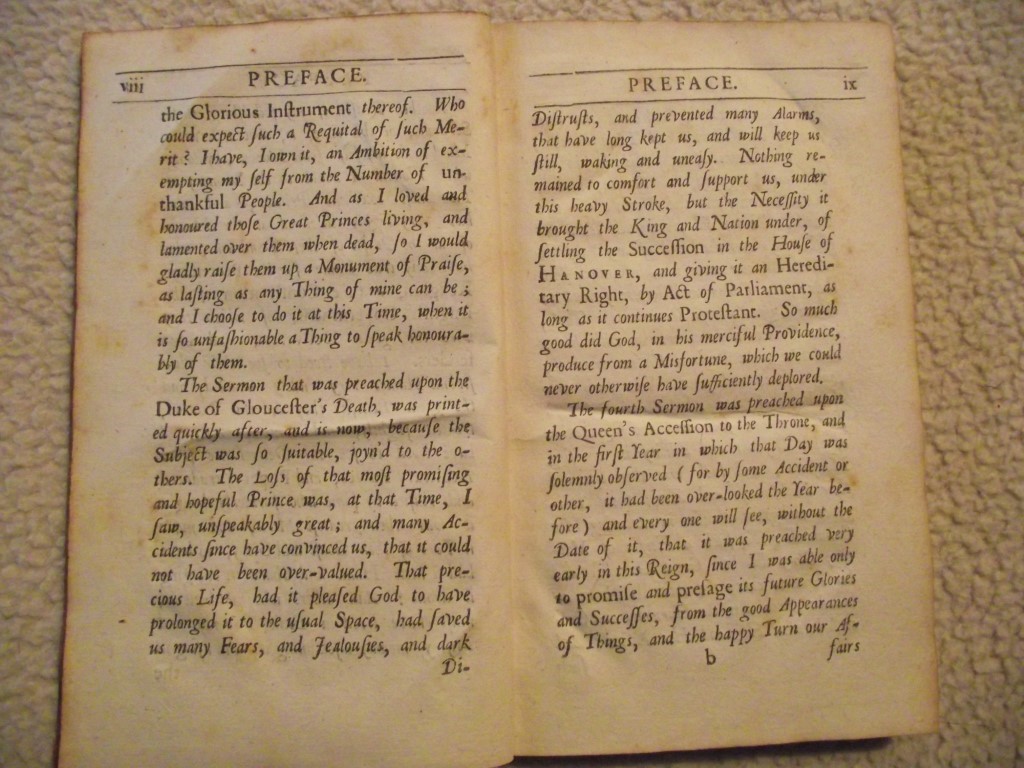 viii PREFACE.
the Glorious Inſtrument thereof. Who
could expect ſuch a Requital of ſuch Me-
rit? I have, I own it, an Ambition of ex-
empting my ſelf from the Number of un-
thankful People. And as I loved and
honoured thoſe Great Princes living, and
lamented over them when dead, ſo I would
gladly raiſe them up a Monument of Praiſe,
as laſting as any Thing of mine can be;
and I chooſe to do it at this Time, when it
is ſo unfaſhionable a Thing to ſpeak honoura-
bly of them.
The Sermon that was preached upon the
Duke of Glouceſter's Death, was print-
ed quickly after, and is now, becauſe the
Subject was ſo ſuitable, joyn'd to the o-
thers. The Loſs of that moſt promiſing
and hopeful Prince was, at that Time, I
ſaw, unſpeakably great; and many Ac-
cidents ſince have convinced us, that it could
not have been over-valued. That pre-
cious Life, had it pleaſed God to have
prolonged it to the uſual Space, had ſaved
us many Fears, and Jealouſies, and dark
Di-
PREFACE. ix
Diſtruſts, and prevented many Alarms,
that have long kept us, and will keep us
ſtill, waking and uneaſy. Nothing re-
mained to comfort and ſupport us, under
this heavy Stroke, but the Neceſſity it
brought the King and Nation under, of
ſettling the Succeſſion in the Houſe of
HANOVER, and giving it an Heredi-
tary Right, by Act of Parliament, as
long as it continues Proteſtant. So much
good did God, in his merciful Providence,
produce from a Misfortune, which we could
never otherwiſe have ſufficiently deplored.
The fourth Sermon was preached upon
the Queen's Acceſſion to the Throne, and
in the firſt Year in which that Day was
ſolemnly obſerved (for by ſome Accident or
other, it had been over-looked the Year be-
fore) and every one will ſee, without the
Date of it, that it was preached very
early in this Reign, ſince I was able only
to promiſe and preſage its future Glories
and Succeſſes, from the good Appearances
of Things, and the happy Turn our Af-
b fairs